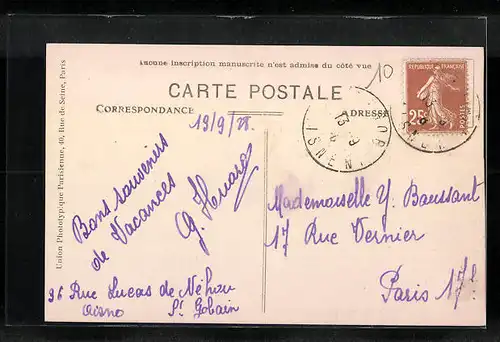 Aucune inscription manuscrite n'est admise du côté vue
CARTE POSTALE
CORRESPONDANCE
ADRESSE
Union Phototypique Parisienne, 40, Rue de Seine, Paris
10
RÉPUBLIQUE FRANÇAISE
25
POSTES
AISNE
19/9/28.
Bons souvenirs
de Vacances
G.
96 Rue Lucas de Néhou
Aisne St Gobain
Mademoiselle Y. Baussant
17 Rue Vernier
Paris 17e